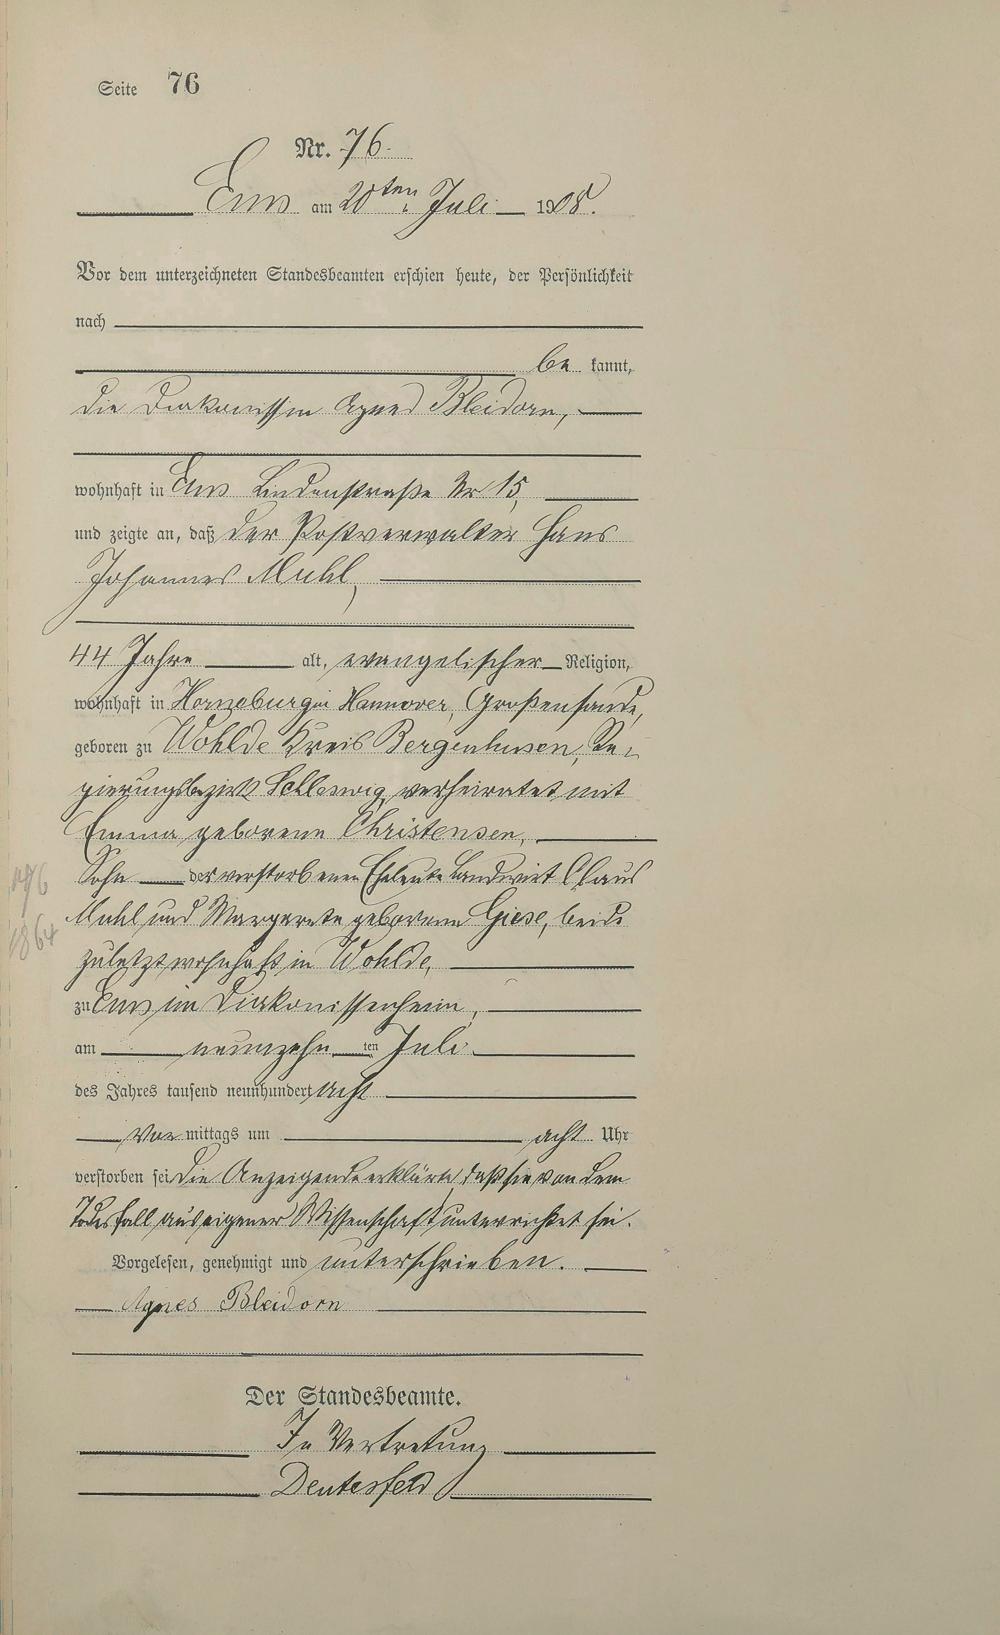 Seite 76
Nr. 76.
Ems am 20ten Juli 1908.
Vor dem unterzeichneten Standesbeamten erschien heute, der Persönlichkeit
nach
be kannt,
die Diakonissin Agnes Bleidorn,
wohnhaft in Ems Lindenstraße Nr 15,
und zeigte an, daß der Postverwalter Hans
Johannes Muhl,
44 Jahre alt, evangelischer Religion,
wohnhaft in Horneburg in Hannover, Großensande,
geboren zu Wohlde Kreis Bergenhusen, Re-
gierungsbezirk Schleswig, verheiratet mit
Emma geborene Christensen,
Sohn der verstorbenen Eheleute Landwirt Claus
Muhl und Margarete geborene Giese, beide
1864
zuletzt wohnhaft in Wohlde,
zu Ems im Diakonissenheim,
am neunzehn ten Juli
des Jahres tausend neunhundert acht
Vor mittags um acht Uhr
verstorben sei. Die Anzeigende erklärte, daß sie von dem
Todesfall aus eigener Wissenschaft unterrichtet sei.
Vorgelesen, genehmigt und unterschrieben.
Agnes Bleidorn
Der Standesbeamte.
In Vertretung